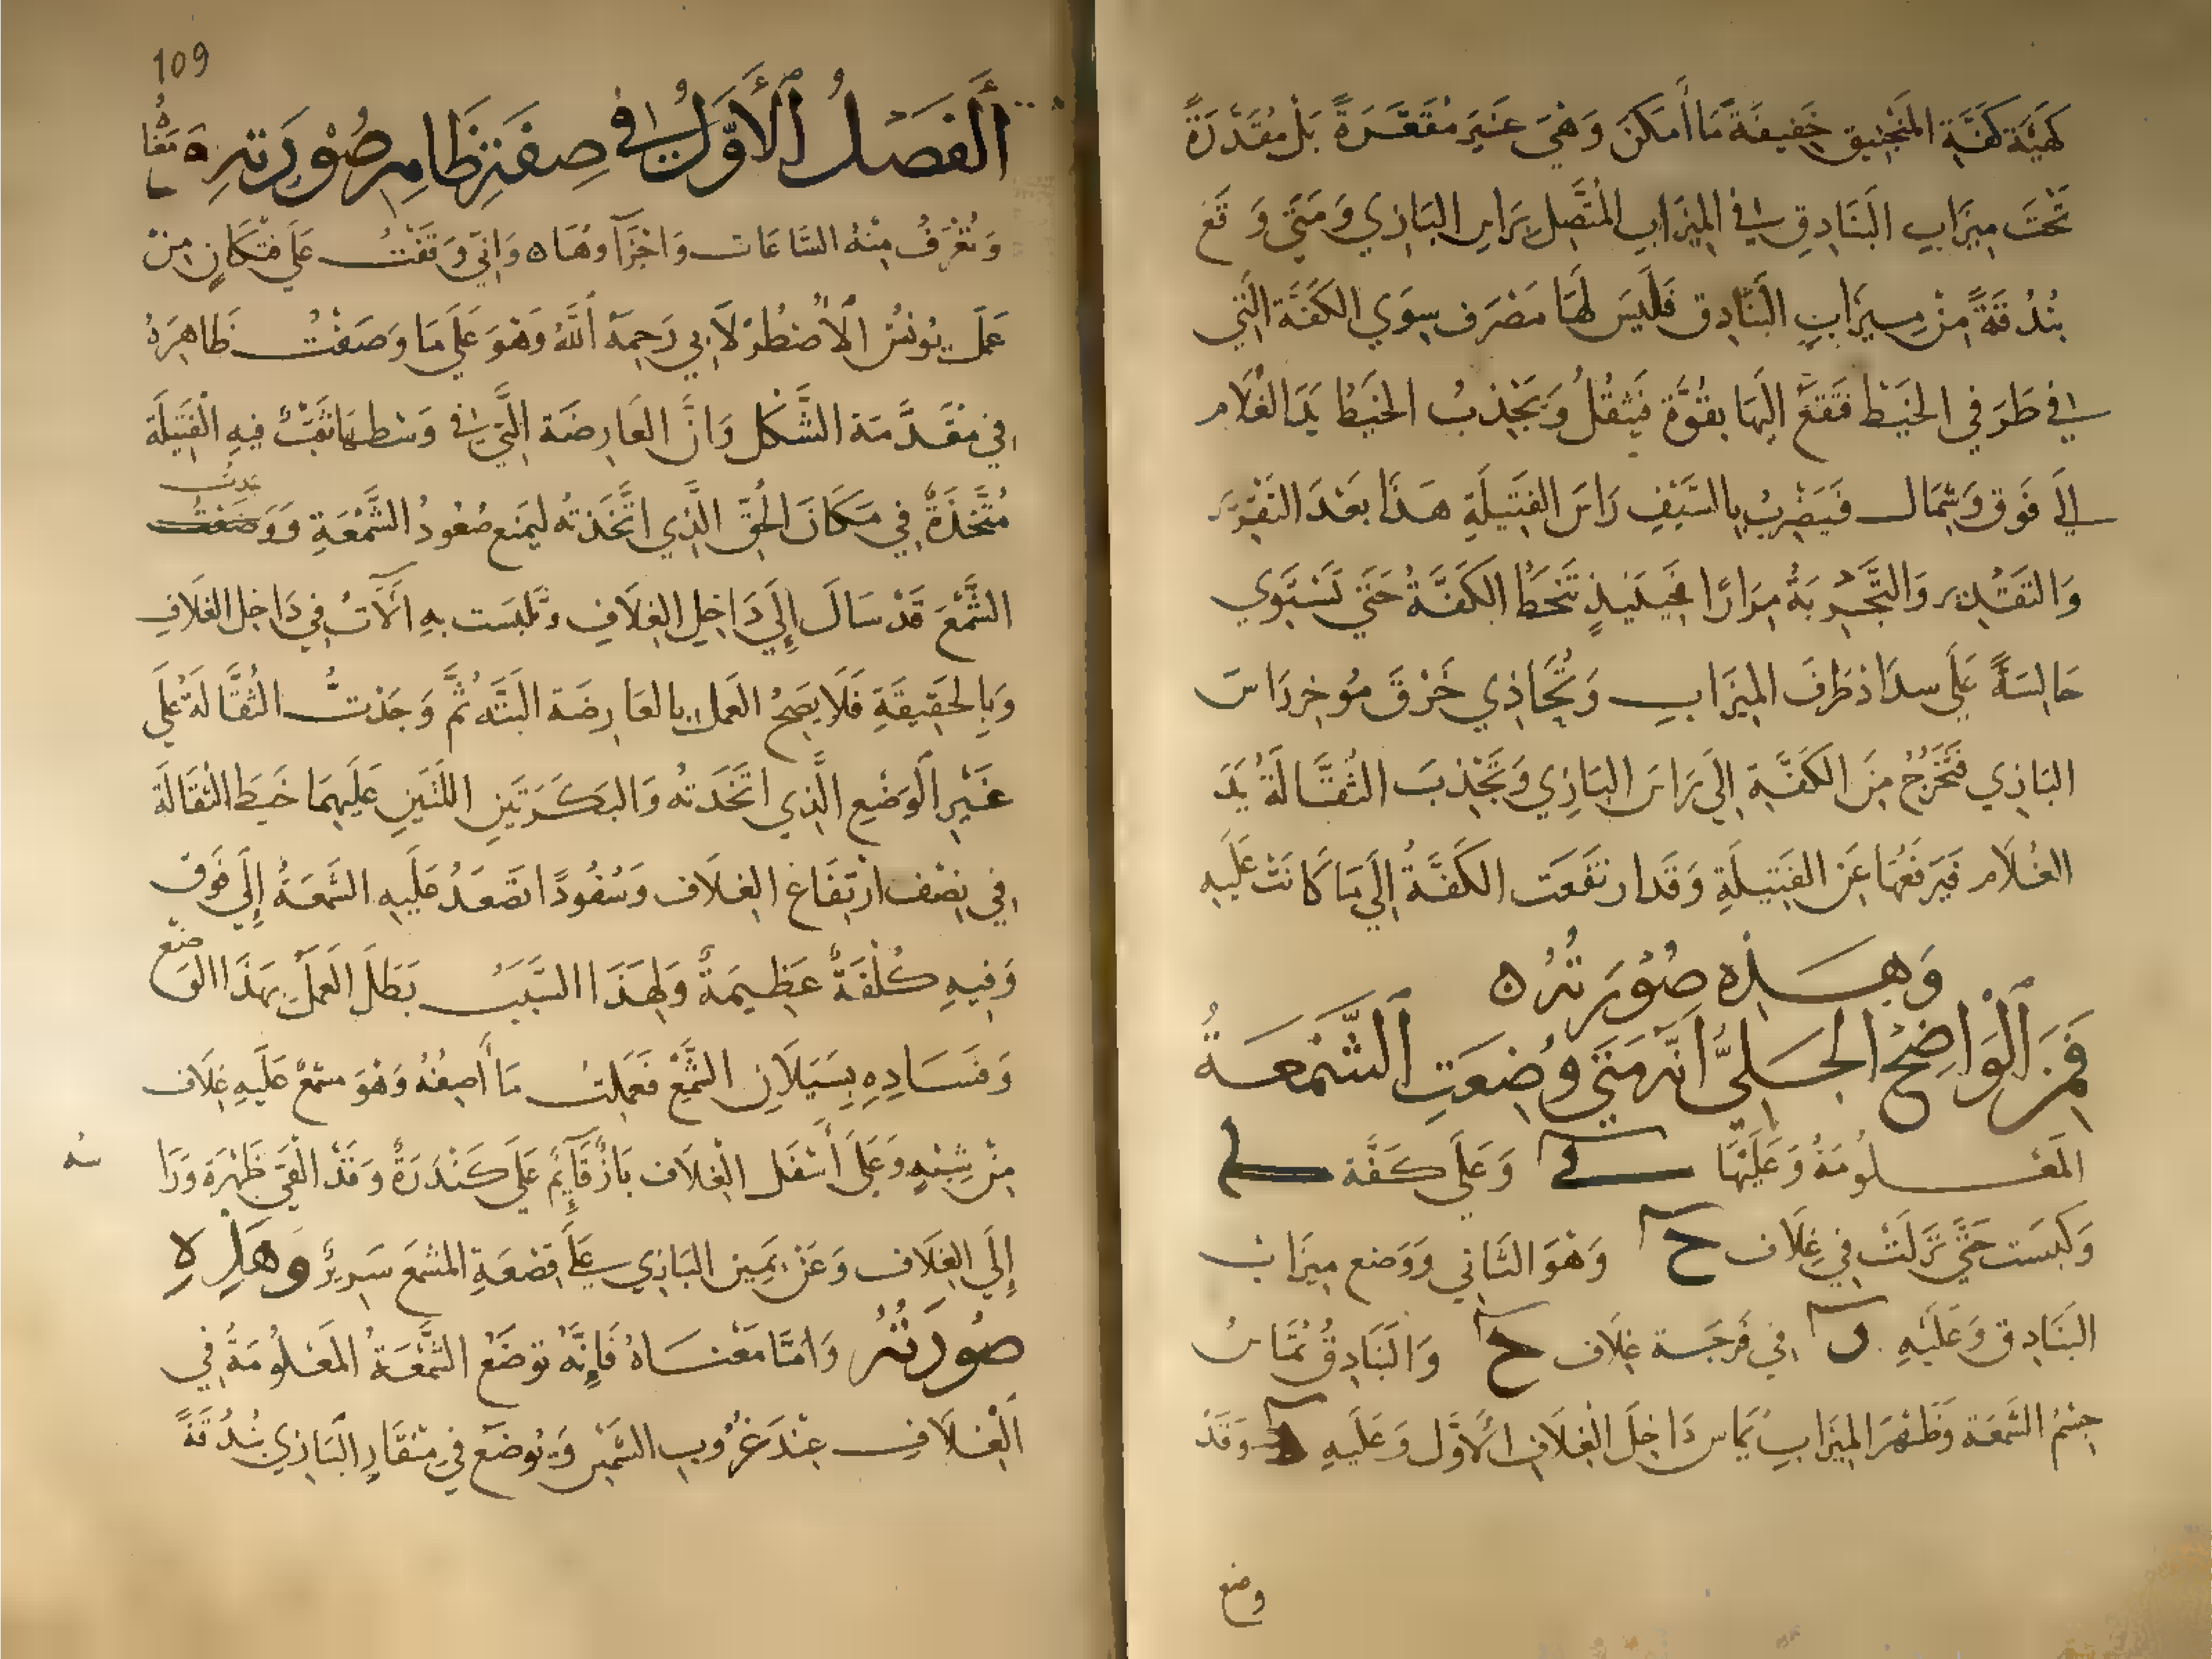 كهيئة كفة المنجنيق خفيفة ما أمكن وهي غير مقعرة بل مقدرة
تحت ميزاب البنادق في الميزاب المتصل براس البازي ومتى وقع
بندقة من ميزاب البنادق فليس لها مصرف سوى الكفة التي
في طرفي الخيط فتقع اليها بقوة فيثقل ويجذب الخيط يد الغلام
الى فوق وشمال فيضرب بالسيف راس الفتيلة هذا بعد
والتقدير والتجربة مرارا فحينئذ تنحط الكفة حتى تستوي
جالسة على سداد طرف الميزاب وتحاذي خرق موخر راس
البازي فتخرج من الكفة الى راس البازي وتجذب الثقالة يد
الغلام فيرفعها عن الفتيلة وقد ارتفعت الكفة الى ما كانت عليه
وهذه صورته ه
فمن الواضح الجلي انه متى وضعت الشمعة
المعلومة وعليها وعلى كفة
وكبست حتى نزلت في غلاف ح وهو الثاني ووضع ميزاب
البنادق وعليه في فرجة غلاف ح والبنادق تماس
جسم الشمعة وظهر الميزاب يماس داخل الغلاف الاول وعليه وقد
وضع
109
الفصل الأول في صفة ظاهر صورته ومعناه
وتعرف منه الساعات واجزاوها ه واني وقفت على مكان من
عمل يونس الاصطرلابي رحمه الله وهو على ما وصفت ظاهره
في مقدمة الشكل وان العارضة التي في وسطها ثقب فيه الفتيلة
متخذة في مكان الحق الذي اتخذته ليمنع صعود الشمعة ووجدت
الشمع قد سال إلى داخل الغلاف وتلبست به آلات في داخل الغلاف
وبالحقيقة فلا يصح العمل بالعارضة البته ثم وجدت الثقالة على
غير الوضع الذي اتخذته والبكرتين اللتين عليهما خيط الثقالة
في نصف ارتفاع الغلاف وسفودا تصعد عليه الشمعة إلى فوق
وفيه كلفة عظيمة ولهذا السبب بطل العمل بهذا الوضع
وفساده بسيلان الشمع فعملت ما أصفه وهو شمع عليه غلاف
من شبه وعلى أسفل الغلاف باز قائم على كندرة وقد القى ظهره ورا
إلى الغلاف وعن يمين البازي على قصعة المشمع سرير وهذه
صورته واما معناه فإنه توضع الشمعة المعلومة في
الغلاف عند غروب الشمس ويوضع في منقار البازي بندقة